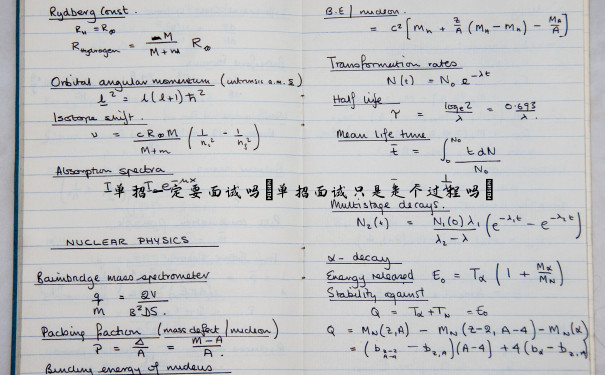 Rydberg Const.
R_H = R_∞
R_Hydrogen = M / (M + m) R_∞
Orbital angular momentum (intrinsic a.m. s)
l² = l(l+1)ħ²
Isotope shift.
ν = cR_∞M / (M+m) (1/n₁² - 1/n₂²)
Absorption spectra
I = I₀e^-μx
单招一定要面试吗 单招面试只是走个过程吗
NUCLEAR PHYSICS
Bainbridge mass spectrometer
q/m = 2V / B²DS.
Packing fraction (mass defect / nucleon)
P = Δ/A = (M-A)/A.
Binding energy of nucleus
B.E / nucleon.
= c² [M_n + Z/A (M_H - M_n) - M_A/A]
Transformation rates
N(t) = N₀ e^-λt
Half life
τ = log_e 2 / λ = 0.693 / λ.
Mean life time
t̄ = ∫₀^N₀ t dN / N₀
Multistage decays.
N₂(t) = N₁(0)λ₁ / (λ₂ - λ) (e^-λ₁t - e^-λ₂t)
α-decay
Energy released E₀ = T_α (1 + M_α/M_N)
Stability against
Q = T_α + T_N = E₀
Q = M_N(Z,A) - M_N(Z-2, A-4) - M_N(α)